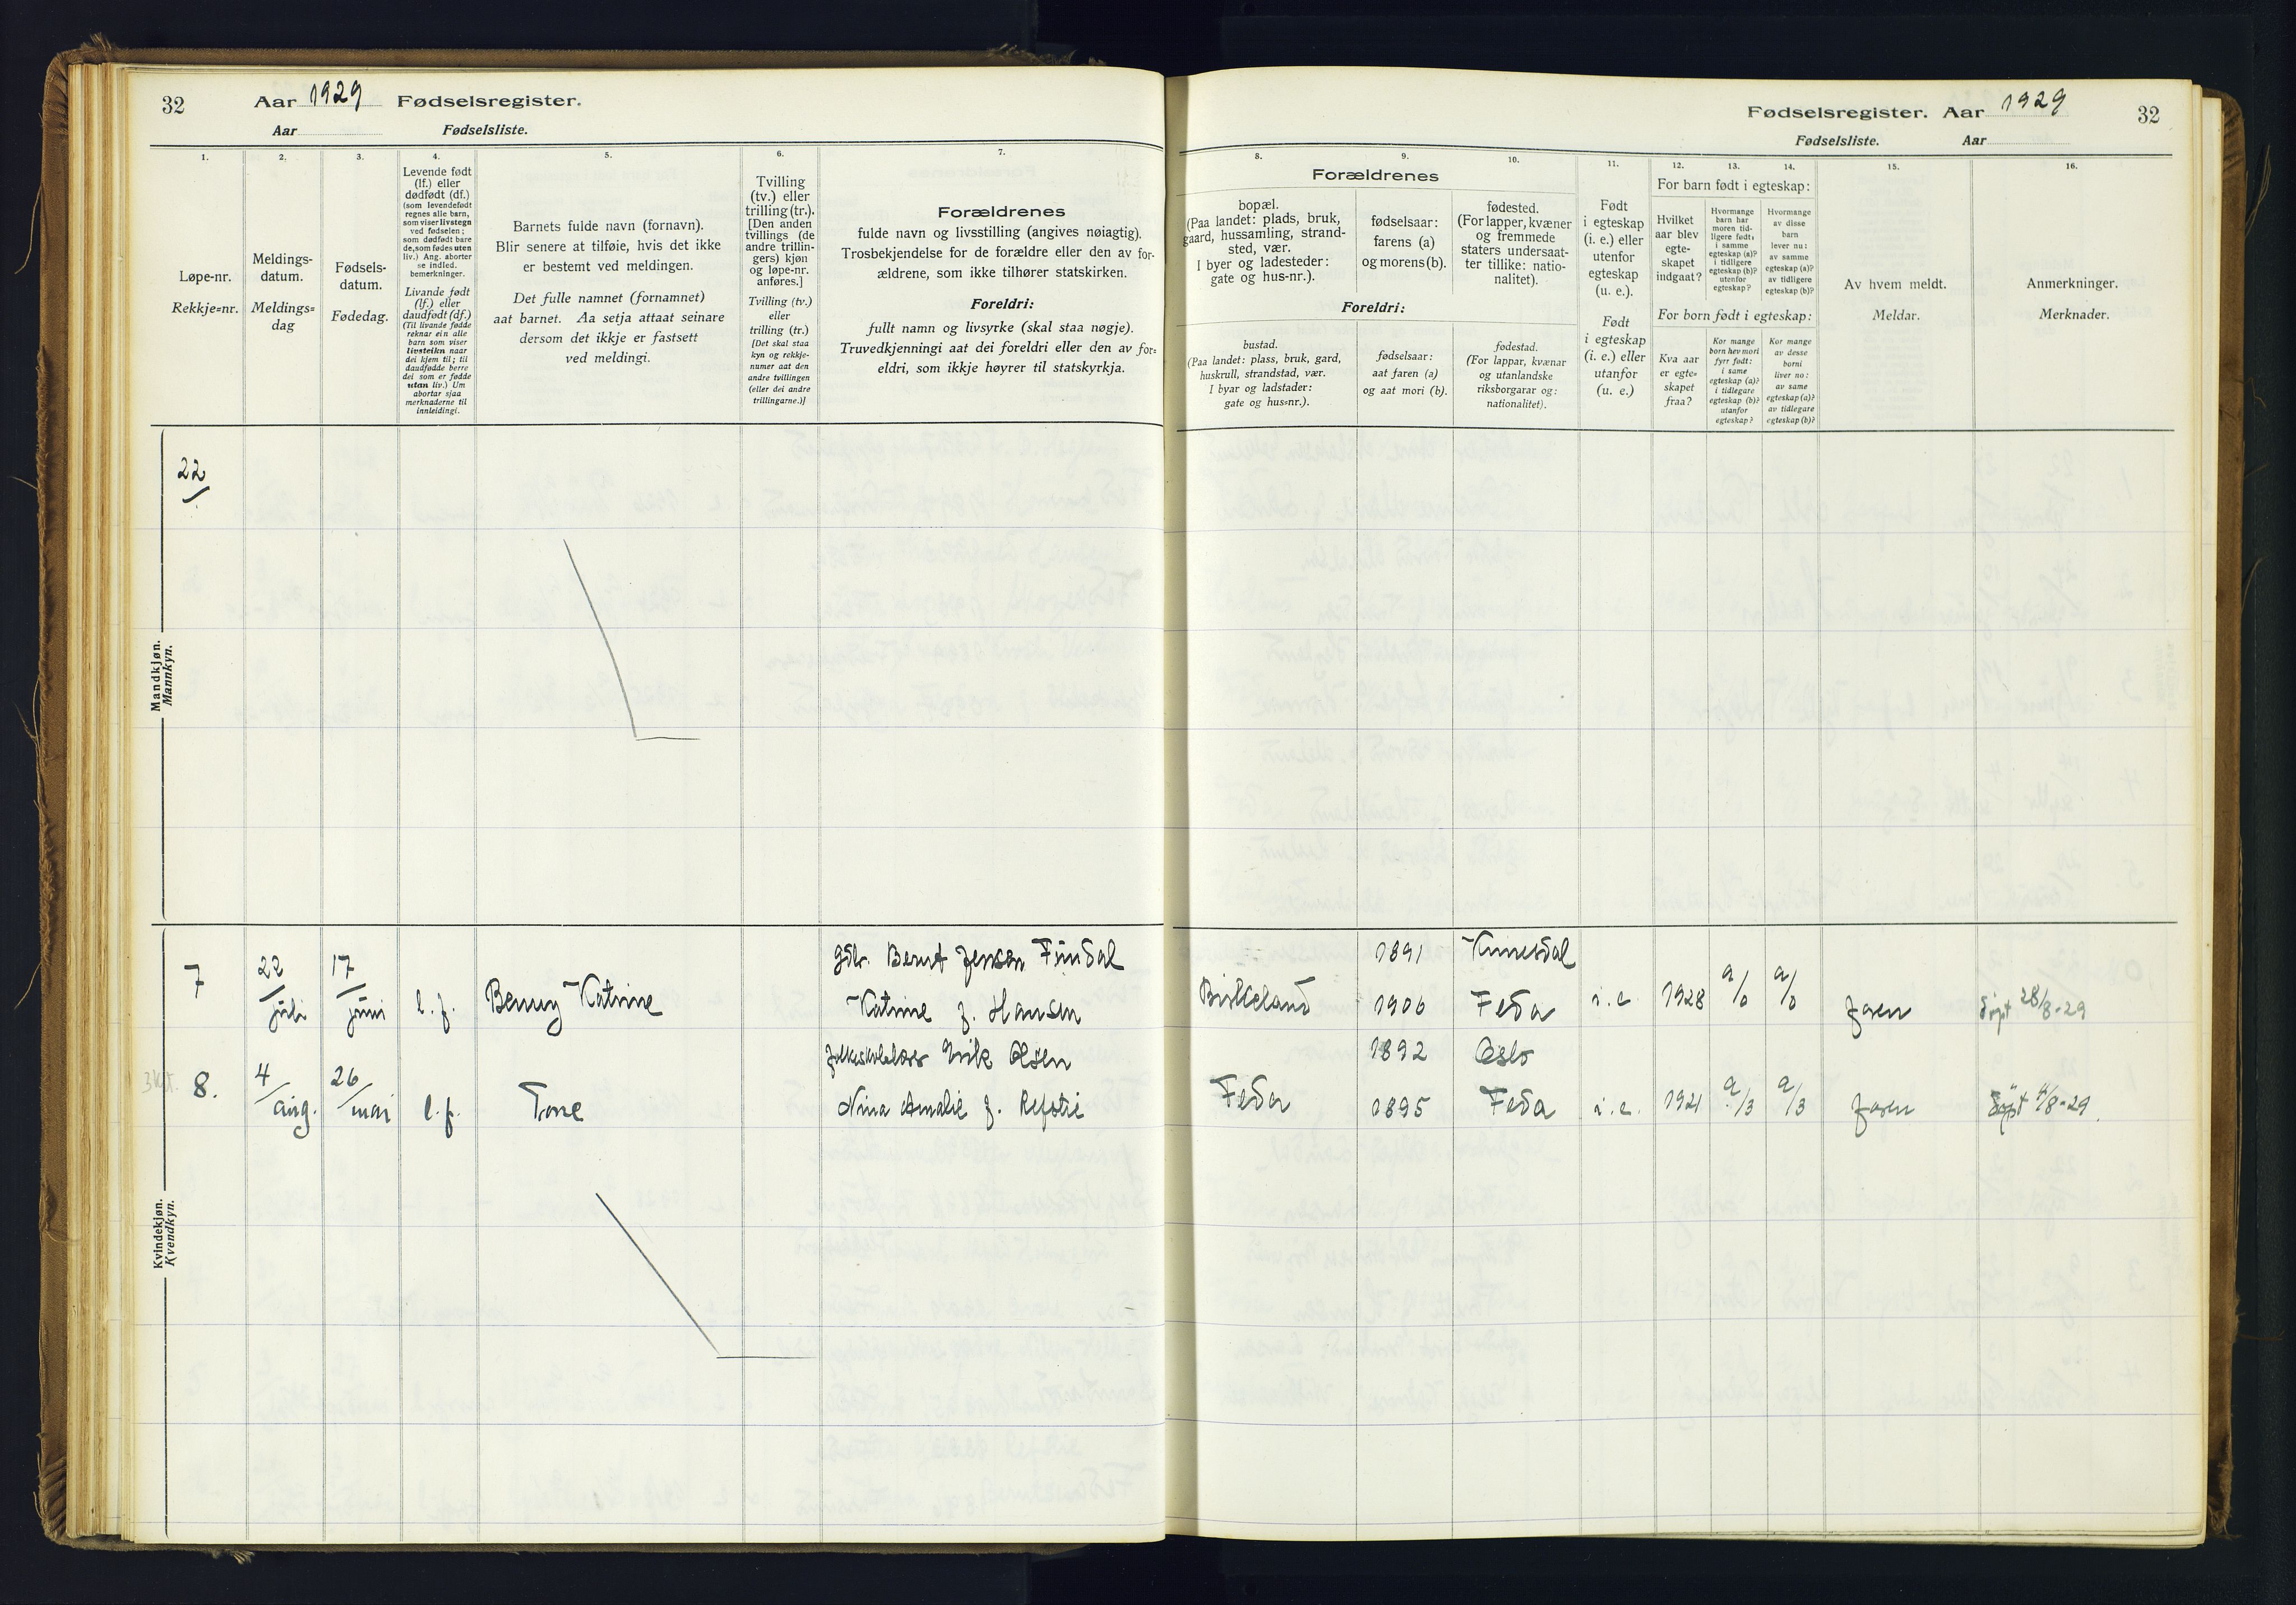 32
Aar 1929 Fødselsregister.
Aar Fødselsliste.
1.
2.
3.
4.
5.
6.
7.
Løpe-nr.
Rekkje=nr.
Meldings-
datum.
Meldings=
dag
Fødsels-
datum.
Fødedag.
Levende født
(lf.) eller
dødfødt (df.)
(som levendefødt
regnes alle barn,
som viser livstegn
ved fødselen;
som dødfødt bare
de, som fødes uten
liv.) Ang. aborter
se indled.
bemerkninger.
Livande født
(lf.) eller
daudfødt (df.)
(Til livande fødde
reknar ein alle
barn som viser
livsteikn naar
dei kjem til; til
daudfødde berre
dei som er fødde
utan liv.) Um
abortar sjaa
merknaderne til
innleidingi.
Barnets fulde navn (fornavn).
Blir senere at tilføie, hvis det ikke
er bestemt ved meldingen.
Det fulle namnet (fornamnet)
aat barnet. Aa setja attaat seinare
dersom det ikkje er fastsett
ved meldingi.
Tvilling
(tv.) eller
trilling (tr.).
[Den anden
tvillings (de
andre trillin-
gers) kjøn
og løpe-nr.
anføres.]
Tvilling (tv.)
eller
trilling (tr.)
[Det skal staa
kyn og rekkje-
numer aat den
andre tvillingen
(eller dei andre
trillingarne.)]
Forældrenes
fulde navn og livsstilling (angives nøiagtig).
Trosbekjendelse for de forældre eller den av for-
ældrene, som ikke tilhører statskirken.
Foreldri:
fullt namn og livsyrke (skal staa nøgje).
Truvedkjenningi aat dei foreldri eller den av for=
eldri, som ikkje høyrer til statskyrkja.
Mandkjøn.
Mannkyn.
22
Kvindekjøn.
Kvendkyn.
7
22/juli
17/juni
l. f.
Benny Katrine
gbr. Bernt Jensen Findal
Katrine f. Hansen
8.
4/aug.
26/mai
l. f.
Tone
folkeskolelærer Erik Olsen
Nina Amalie f. Refstie
Fødselsregister. Aar 1929
32
Fødselsliste. Aar
8.
9.
10.
11.
12.
13.
14.
15.
16.
Forældrenes
bopæl.
(Paa landet: plads, bruk,
gaard, hussamling, strand-
sted, vær.
I byer og ladesteder:
gate og hus-nr.).
fødselsaar:
farens (a)
og morens (b).
fødested.
(For lapper, kvæner
og fremmede
staters undersaat-
ter tillike: natio-
nalitet).
Foreldri:
bustad.
(Paa landet: plass, bruk, gard,
huskrull, strandstad, vær.
I byar og ladstader:
gate og hus=nr.).
fødselsaar:
aat faren (a)
og aat mori (b).
fødestad.
(For lappar, kvænar
og utanlandske
riksborgarar og:
nationalitet).
Født
i egteskap
(i. e.) eller
utenfor
egteskap
(u. e.).
Født
i egteskap
(i. e.) eller
utanfor
(u. e.)
For barn født i egteskap:
Hvilket
aar blev
egte-
skapet
indgaat?
Hvormange
barn har
moren tid-
ligere født:
i samme
egteskap (a)?
i tidligere
egteskap (b)?
utenfor
egteskap?
Hvormange
av disse
barn
lever nu:
av samme
egteskap (a)?
av tidligere
egteskap (b)?
For born født i egteskap:
Kva aar
er egte=
skapet
fraa?
Kor mange
born hev mori
fyrr født:
i same
egteskap (a)?
i tidlegare
egteskap (b)?
utanfor
egteskap?
Kor mange
av desse
borni
liver no:
av same
egteskap (a)?
av tidlegare
egteskap (b)?
Av hvem meldt.
Meldar.
Anmerkninger.
Merknader.
1891 Kvinesdal
Birkeland 1906 Feda i. e. 1928 a/0 a/0 faren døpt 28/8-29
1892 Oslo
Feda 1895 Feda i. e. 1921 a/3 a/3 faren døpt 4/8-29.